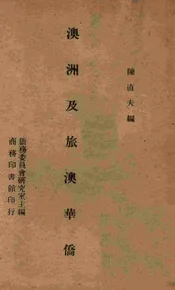 陳直夫編
澳洲及旅澳華僑
僑務委員會研究室主編
商務印書館印行